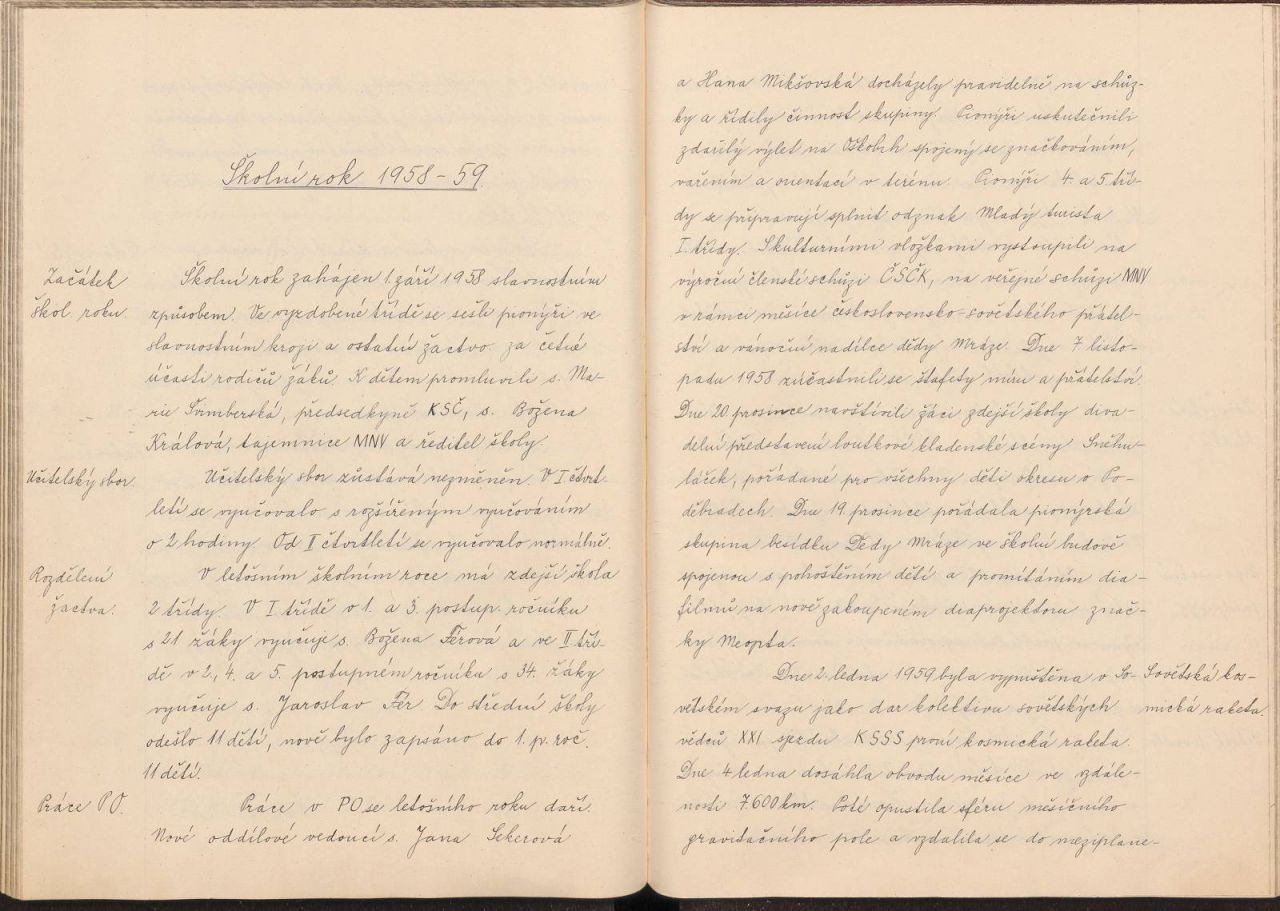 Školní rok 1958-59.
Začátek
škol. roku.
Školní rok zahájen 1. září 1958 slavnostním
způsobem. Ve vyzdobené třídě se sešli pionýři ve
slavnostním kroji a ostatní žactvo za četné
účasti rodičů žáků. K dětem promluvili s. Ma-
rie Švimberská, předsedkyně KSČ, s. Božena
Králová, tajemnice MNV a ředitel školy.
Učitelský sbor.
Učitelský sbor zůstává nezměněn. V I čtvrt-
letí se vyučovalo s rozšířeným vyučováním
o 2 hodiny. Od II čtvrtletí se vyučovalo normálně.
Rozdělení
žactva.
V letošním školním roce má zdejší škola
2 třídy. V I třídě o 1. a 3. postup. ročníku
s 21 žáky vyučuje s. Božena Férová a ve II tří-
dě v 2., 4. a 5. postupném ročníku s 34. žáky
vyučuje s. Jaroslav Fér. Do střední školy
odešlo 11 dětí, nově bylo zapsáno do 1. p. roč.
11 dětí.
Práce PO.
Práce v PO se letošního roku daří.
Nové oddílové vedoucí s. Jana Sekerová
a Hana Mikšovská docházely pravidelně na schůz-
ky a řídily činnost skupiny. Pionýři uskutečnili
zdařilý výlet na Oškobrh spojený se značkováním,
vařením a orientací v terénu. Pionýři 4. a 5. tří-
dy se připravují splnit odznak Mladý turista
I. třídy. S kulturními vložkami vystoupili na
výroční členské schůzi ČSČK, na veřejné schůzi MNV
v rámci měsíce československo-sovětského přátel-
ství a vánoční nadílce dědy Mráze. Dne 7. listo-
padu 1958 zúčastnili se štafety míru a přátelství.
Dne 20 prosince navštívili žáci zdejší školy diva-
delní představení loutkové kladenské scény Sněhu-
láček, pořádané pro všechny děti okresu v Po-
děbradech. Dne 19. prosince pořádala pionýrská
skupina besídku Dědy Mráze ve školní budově
spojenou s pohoštěním dětí a promítáním dia-
filmů na nově zakoupeném diaprojektoru znač-
ky Meopta.
Dne 2. ledna 1959 byla vypuštěna v So-
Sovětská kos-
mická raketa.
větském svazu jako dar kolektivu sovětských
vědců XXI sjezdu KSSS první kosmická raketa.
Dne 4 ledna dosáhla obvodu měsíce ve vzdále-
nosti 7.600 km. Poté opustila sféru měsíčního
gravitačního pole a vzdálila se do meziplane-